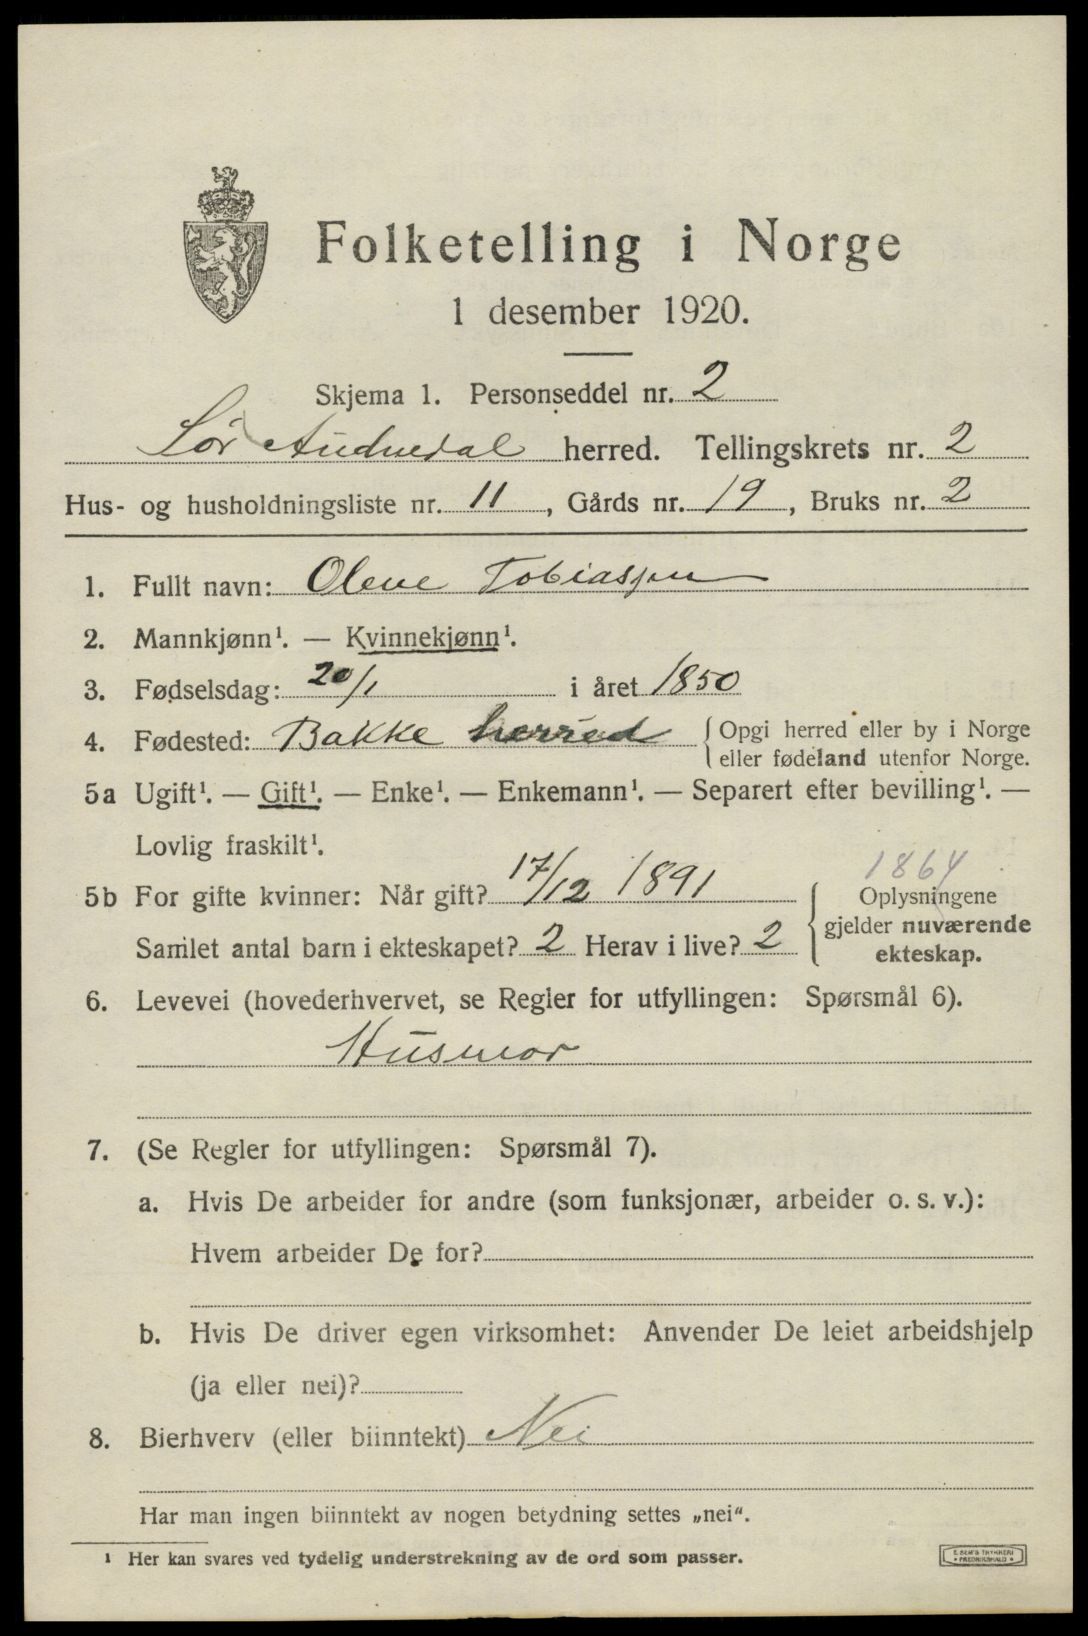 Folketelling i Norge
1 desember 1920.
Skjema 1. Personseddel nr. 2
Sør Audnedal herred. Tellingskrets nr. 2
Hus- og husholdningsliste nr. 11, Gårds nr. 19, Bruks nr. 2
1. Fullt navn: Olene Tobiassen
2. Mannkjønn¹. — Kvinnekjønn¹.
3. Fødselsdag: 20/1 i året 1850
4. Fødested: Bakke herred { Opgi herred eller by i Norge
eller fødeland utenfor Norge.
5a Ugift¹. — Gift¹. — Enke¹. — Enkemann¹. — Separert efter bevilling¹. —
Lovlig fraskilt¹.
1864
5b For gifte kvinner: Når gift? 17/12 1891 { Oplysningene
gjelder nuværende
Samlet antal barn i ekteskapet? 2 Herav i live? 2 ekteskap.
6. Levevei (hovederhvervet, se Regler for utfyllingen: Spørsmål 6).
Husmor
7. (Se Regler for utfyllingen: Spørsmål 7).
a. Hvis De arbeider for andre (som funksjonær, arbeider o. s. v.):
Hvem arbeider De for?
b. Hvis De driver egen virksomhet: Anvender De leiet arbeidshjelp
(ja eller nei)?
8. Bierhverv (eller biinntekt) Nei
Har man ingen biinntekt av nogen betydning settes „nei“.
¹ Her kan svares ved tydelig understrekning av de ord som passer.
E. SEM'S TRYKKERI
• FREDRIKSHALD •